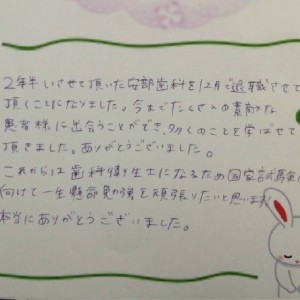 2年半いさせて頂いた安部歯科を12月で退職させて
頂くことになりました。今までたくさんの素敵な
患者様に出会うことができ、多くのことを学ばせて
頂きました。ありがとうございました。
これからは歯科衛生士になるため国家試験に
向けて一生懸命勉強を頑張りたいと思います
本当にありがとうございました。